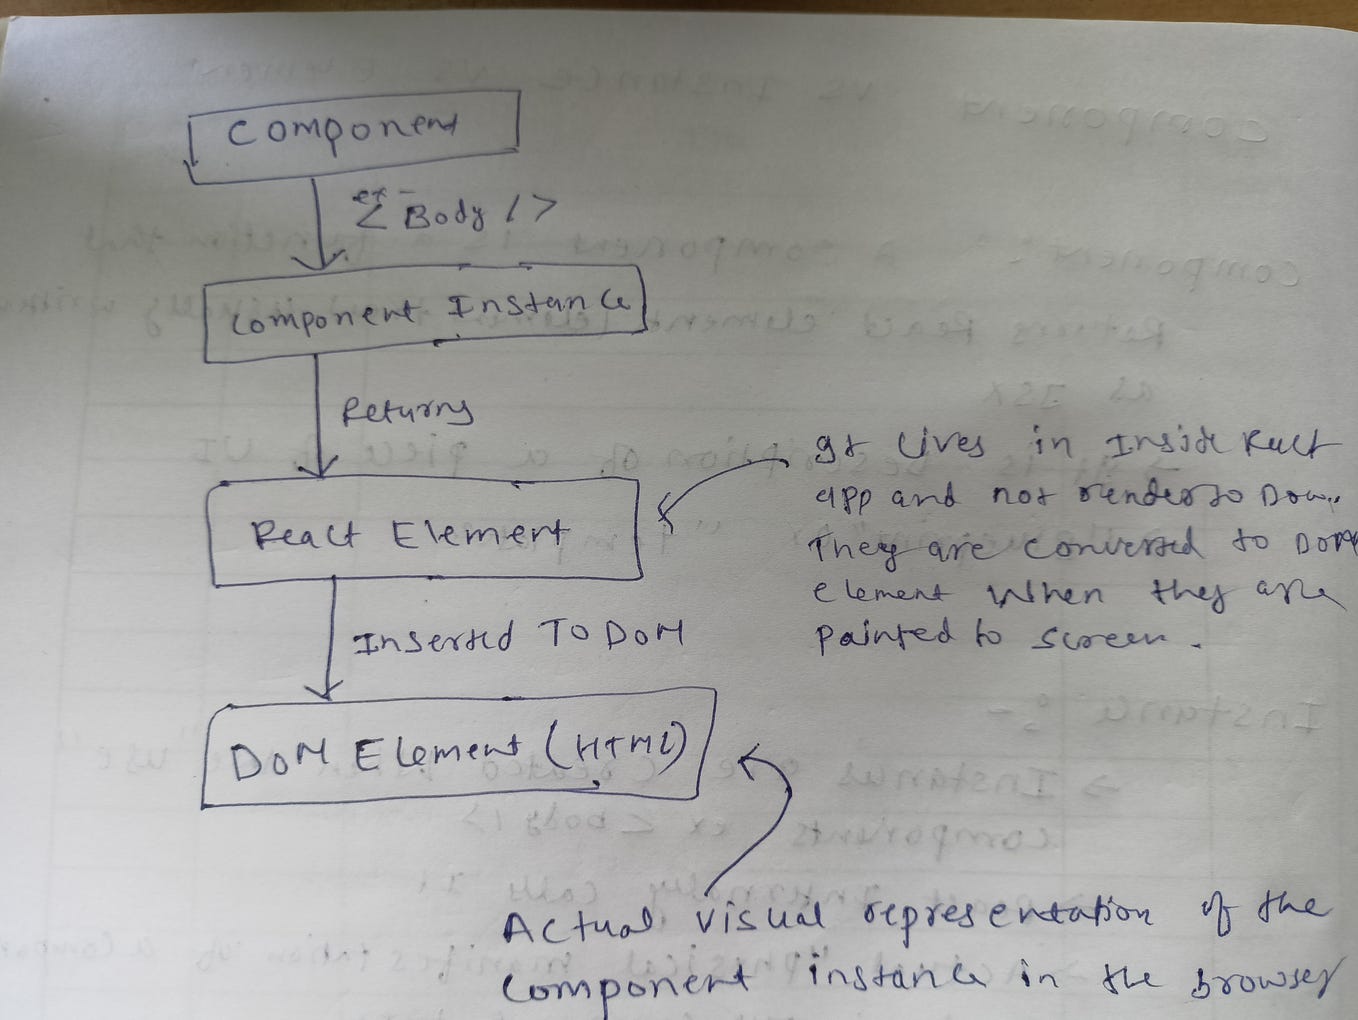 Component
ex -
<Body />
Component Instance
Returns
React Element
It lives in Inside React
app and not render to Dom.
They are converted to DOM
element when they are
painted to screen.
Inserted To DOM
DOM Element (HTML)
Actual visual representation of the
component instance in the browser